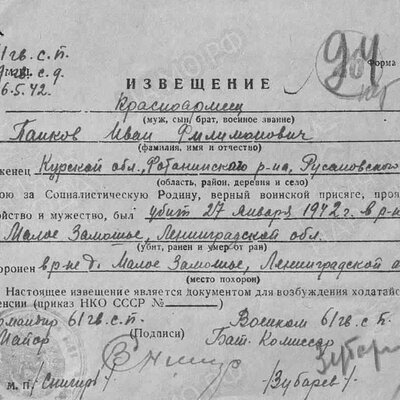 1 гв. с. п.
гв. с. д.
6.5.42.
Форма
94
ИЗВЕЩЕНИЕ
Красноармеец
(муж, сын, брат, военное звание)
Панков Иван Филимонович
(фамилия, имя и отчество)
женец Курской обл., Фатежинского р-на, Русановского
(область, район, деревня и село)
ою за Социалистическую Родину, верный воинской присяге, проя
йство и мужество, был убит 27 января 1942 г. в р-н
Малое Замошье, Ленинградской обл.
(убит, ранен и умер от ран)
оронен в р-не д. Малое Замошье, Ленинградской о
(место похорон)
Настоящее извещение является документом для возбуждения ходатай
енсии (приказ НКО СССР №
омандир 61 гв. с. п. Военком 61 гв. с. п.
Майор (Подписи) Бат. Комиссар
М. П. /Снигирь/ /Зубарев/